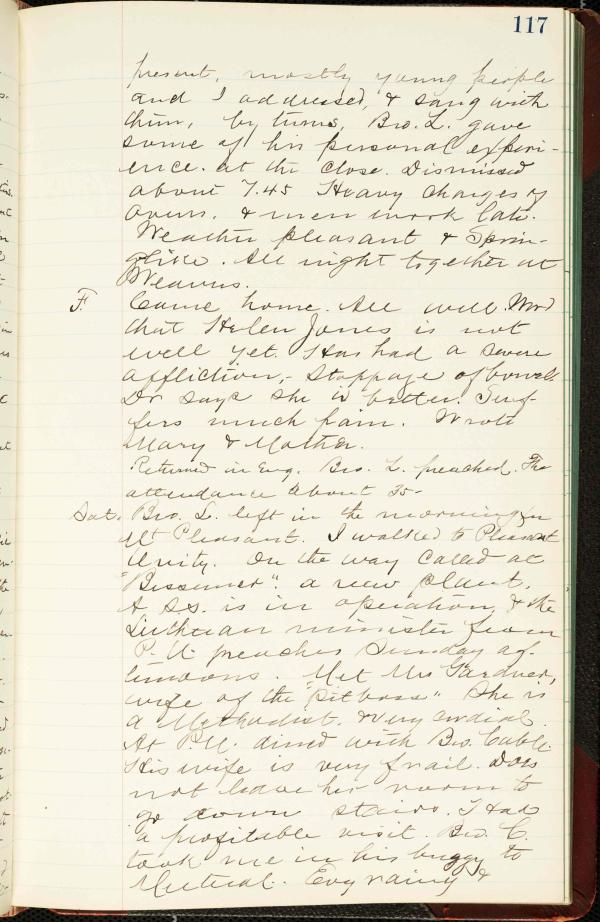 117
present, mostly young people
and I addressed, & sang with
them, by turns, Bro. L. gave
some of his personal experi-
ence. at the close. Dismissed
about 7.45 Heavy charges of
ovens. & men work late.
Weather pleasant & Sprin-
glike. All night together at
Weavers.
F. Came home. All well. Word
that Helen Jones is not
well yet. Has had a severe
affliction,- Stoppage of bowels
Dr says she is better. Suf-
fers much pain. Wrote
Mary & Mother.
Returned in Evg. Bro. L. preached. The
attendance about 35-
Sat. Bro. L. left in the morning for
Mt Pleasant. I walked to Pleasant
Unity. On the way called at
"Bessemer" a new plant.
A SS. is in operation, & the
Lutheran minister from
P. U. preaches Sunday af-
ternoons. Met Mrs Gardner,
wife of the "pit boss" She is
a Methodist. & very cordial.
At P.U. dined with Bro. Cable.
His wife is very frail. Does
not leave her room to
go down stairs. I Had
a profitable visit. Bro. C.
took me in his buggy to
Mutual. Evg rainy &